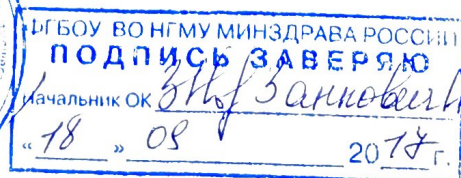 ФГБОУ ВО НГМУ МИНЗДРАВА РОССИИ
ПОДПИСЬ ЗАВЕРЯЮ
Начальник ОК Занкович
"18" 09 2017 г.